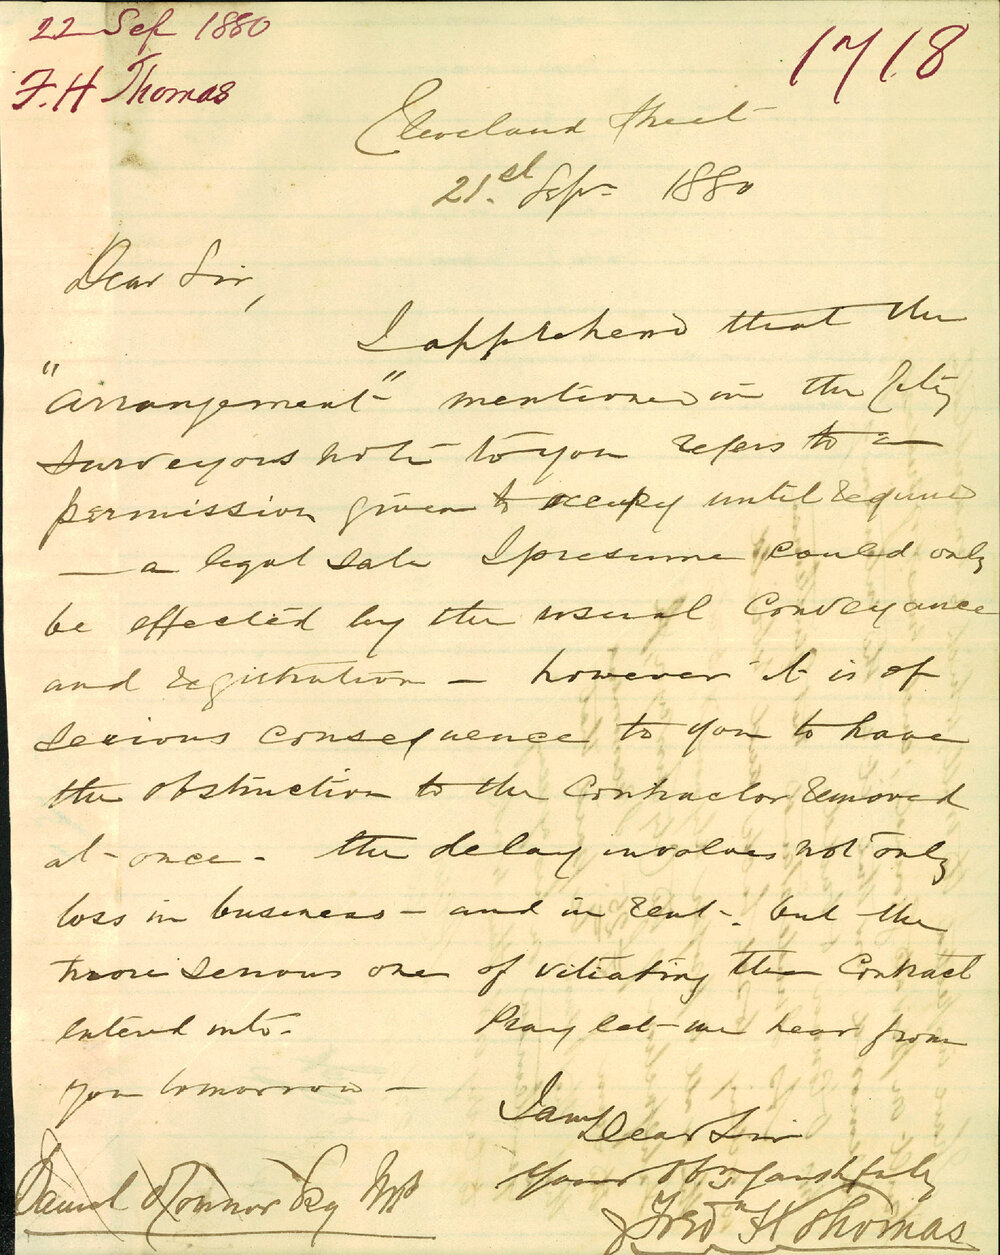 22 Sep 1880
F. H Thomas
1718
Cleveland Street
21.st Sepr 1880
Dear Sir,
I apprehend that the
"arrangement" mentioned in the City
Surveyors note to you refers to a
permission given to occupy until required
— a legal sale I presume could only
be effected by the usual conveyance
and registration — however it is of
serious consequence to you to have
the obstruction to the Contractor removed
at once. the delay involves not only
loss in business — and in rent -. but the
more serious one of vitiating the Contract
entered into. Pray let me hear from
you tomorrow —
I am
Dear Sir
Yours faithfully
Fredk H Thomas
Daniel O'Connor Esq MP